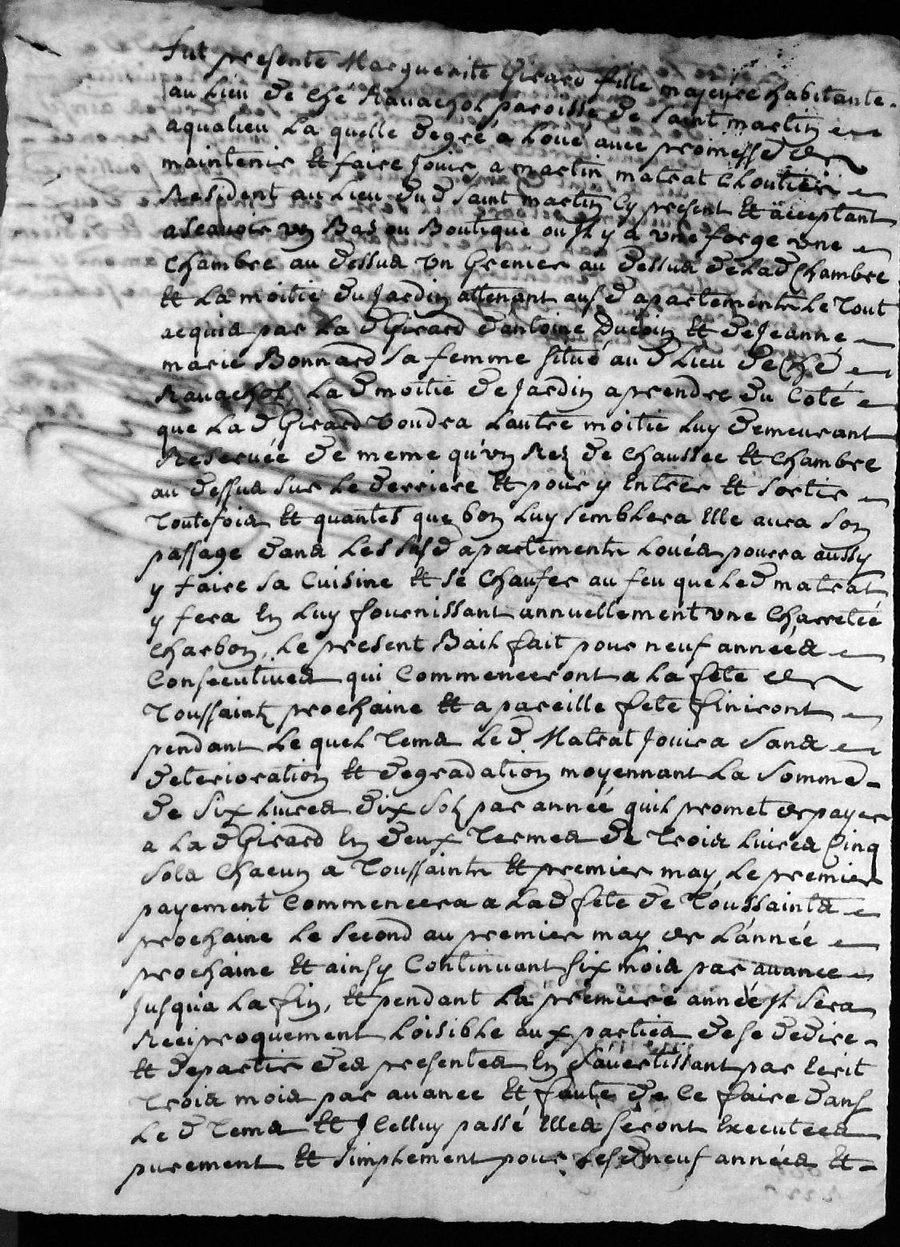 fut presente Marguerite Girard fille majeure habitante
au Lieu de che Ravachol paroisse de Saint martin
aqualieu La quelle degré a Loué avec promesse de
maintenir et faire Jouir a martin matrat Cloutier
Resident au Lieu dud Saint martin Cy present et acceptant
ascavoir un Bas ou Boutique ou Il y a une forge une
Chambre au dessus un Grenier au dessus de Lad Chambre
et La moitié du Jardin attenant ausd apartements Le Tout
acquis par La d Girard dantoine Ducoin et de Jeanne
marie Bonnard sa femme situé au d Lieu de Ché
Ravachol, La d moitié de Jardin a prendre du Coté
que La d Girard voudra Lautre moitié Luy demeurant
Reservée de meme qu'un Rez de Chaussée et Chambre
au dessus sur Le derriere et pour y Entrer et sortir
Toutefois et quantes que bon Luy semblera Elle aura Son
passage dans Les susd apartements Loués pourra aussy
y faire sa Cuisine et se Chaufer au feu que Le d matrat
y fera En Luy fournissant annuellement une Charretée
Charbon, Le present Bail fait pour neuf années
Consecutives qui Commenceront a La fete de
Toussaint prochaine et a pareille fete finiront
pendant Le quel Tems Le d Matrat Jouira Sans
deterioration et degradation moyennant La Somme
de Six Livres dix Solz par année quil promet de payer
a La d Girard En deux Termes de Trois Livres Cinq
Sols Chacun a Toussaints et premier may Le premier
payement Commencera a Lad fete de Toussaints
prochaine Le second au premier may de L'année
prochaine et ainsy Continuant six mois par avance
Jusqua La fin, et pendant La premiere année Il Sera
Reciproquement Loisible aux parties de se dedire
et departir des presentes En s'avertissant par Ecrit
Trois mois par avance et faute de Ce faire dans
Le d Tems et Icelluy passé Elles seront Executées
purement et simplement pour Lesd neuf années et